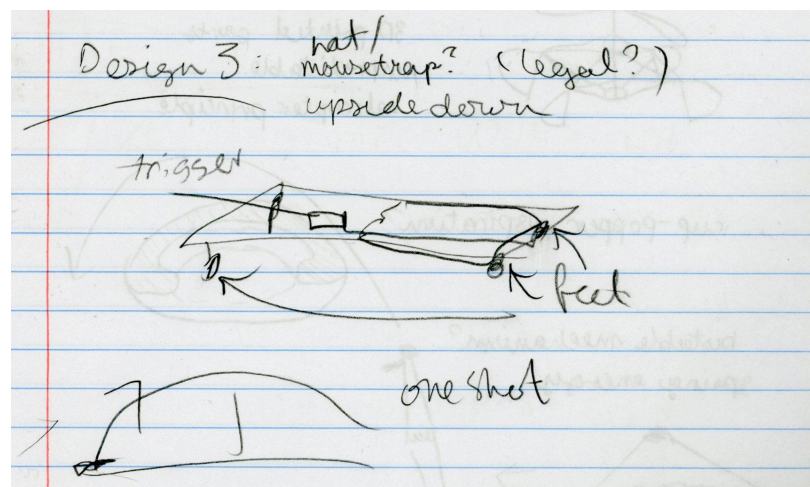 Design 3: rat/
mousetrap? (legal?)
upside down
trigger
feet
one shot